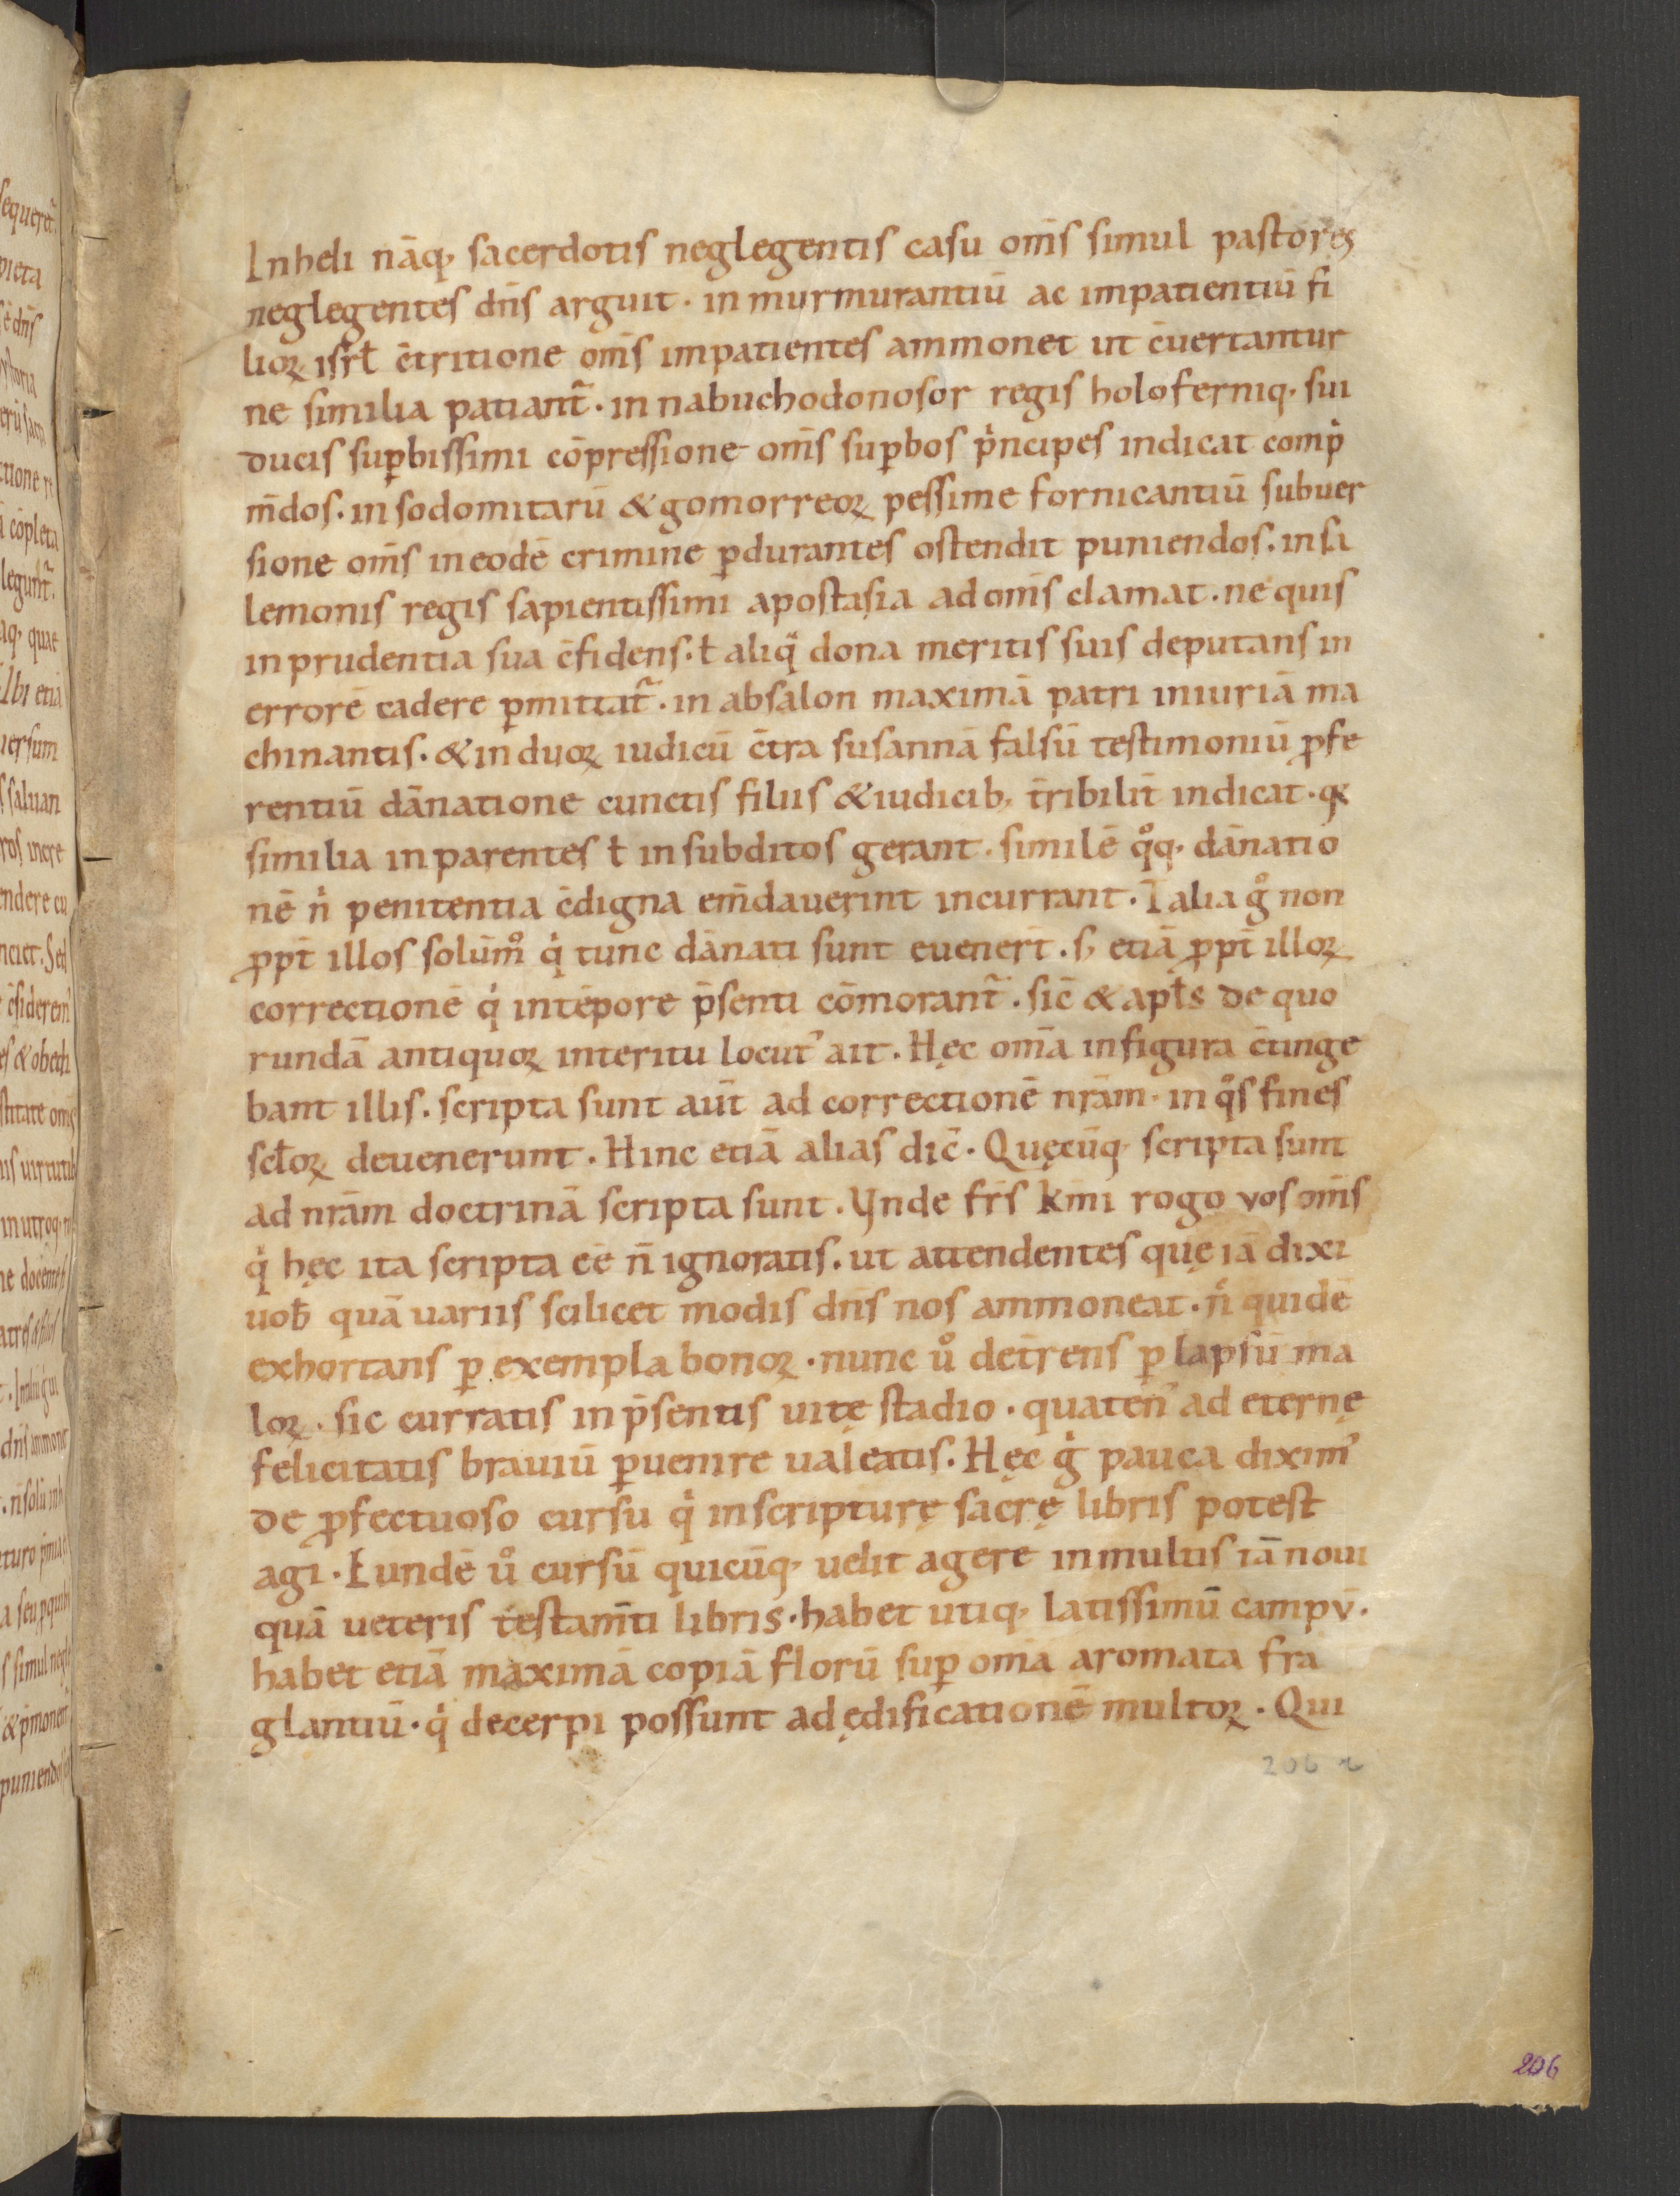 In heli nāq; sacerdotis neglegentis casu om̄s simul pastores
neglegentes dn̄s arguit · in murmurantiū ac impatientiū fi
lioꝝ isrł c̄tritione om̄s impatientes ammonet ut c̄uertantur
ne similia patiant᷑ · in nabuchodonosor regis holoferniq; sui
ducis suꝑbissimi cōpressione om̄s suꝑbos pͥncipes indicat compͥ
m̄dos · in sodomitarū & gomorreoꝝ pessime fornicantiū subuer
sione om̄s in eodē crimine ꝑdurantes ostendit puniendos · in sa
lemonis regis sapientissimi apostasia ad om̄s clamat · ne quis
in prudentia sua c̄fidens · ł aliqͣ dona meritis suis deputans in
errorē cadere ꝑmittat᷑ · in absalon maximā patri iniuriā ma
chinantis · & in duoꝝ iudicū c̄tra susannā falsū testimoniū ꝓfe
rentiū dānatione cunctis filiis & iudicib; t̄ribilit̄ indicat · qͥ
similia in parentes ł in subditos gerant · similē qͦq; dānatio
nē nͥ penitentia c̄digna em̄dauerint incurrant · Talia gͦ non
ꝓpt̄ illos solūmͦ qͥ tunc dānati sunt euenert̄ · s; etiā ꝓpt̄ illoꝝ
correctionē qͥ in tēpore p̄senti cōmorant᷑ · sic̄ & apłs de quo
rundā antiquoꝝ interitu locut᾿ ait · Hęc om̄a in figura c̄tinge
bant illis · scripta sunt aūt ad correctionē nr̄am · in qͦs fines
scłoꝝ deuenerunt · Hinc etiā alias dic̄ · Quęcūq; scripta sunt
ad nr̄am doctrinā scripta sunt · Vnde fr̄s km̄i rogo vos om̄s
qͥ hęc ita scripta eē n̄ ignoratis · ut attendentes quę iā dixi
uob̄ quā uariis scilicet modis dn̄s nos ammoneat · nͨ quidē
exhortans ꝑ exempla bonoꝝ · nunc uͦ det̄rens ꝑ lapsū ma
loꝝ · sic curratis in p̄sentis uitę stadio · quaten᾿ ad eternę
felicitatis brauiū ꝑuenire ualeatis · Hęc gͥ pauca dixim᾿
de ꝓfectuoso cursu qͥ in scripturę sacrę libris potest
agi · Eundē uͦ cursū quicūq; uelit agere in multis iā noui
quā ueteris testam̄ti libris · habet utiq; latissimū campv̄ ·
habet etiā maximā copiā florū suꝑ om̄ia aromata fra
glantiū · qͥ decerpi possunt ad ędificationē multoꝝ · Qui
206 r
206